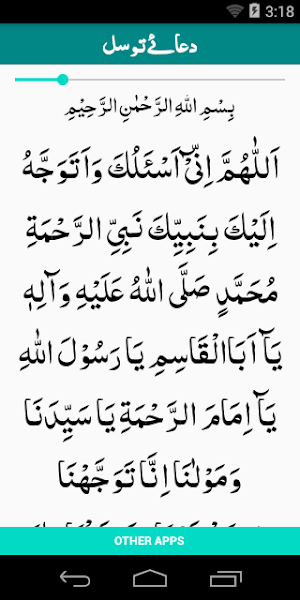 3:18
دعائے توسل
بِسْمِ اللهِ الرَّحْمٰنِ الرَّحِيْمِ
اَللّٰهُمَّ اِنِّيْٓ اَسْئَلُكَ وَاَتَوَجَّهُ
اِلَيْكَ بِنَبِيِّكَ نَبِيِّ الرَّحْمَةِ
مُحَمَّدٍ صَلَّى اللهُ عَلَيْهِ وَآلِهٖ
يَآ اَبَا الْقَاسِمِ يَا رَسُوْلَ اللهِ
يَآ اِمَامَ الرَّحْمَةِ يَا سَيِّدَنَا
وَمَوْلٰنَا اِنَّا تَوَجَّهْنَا
OTHER APPS